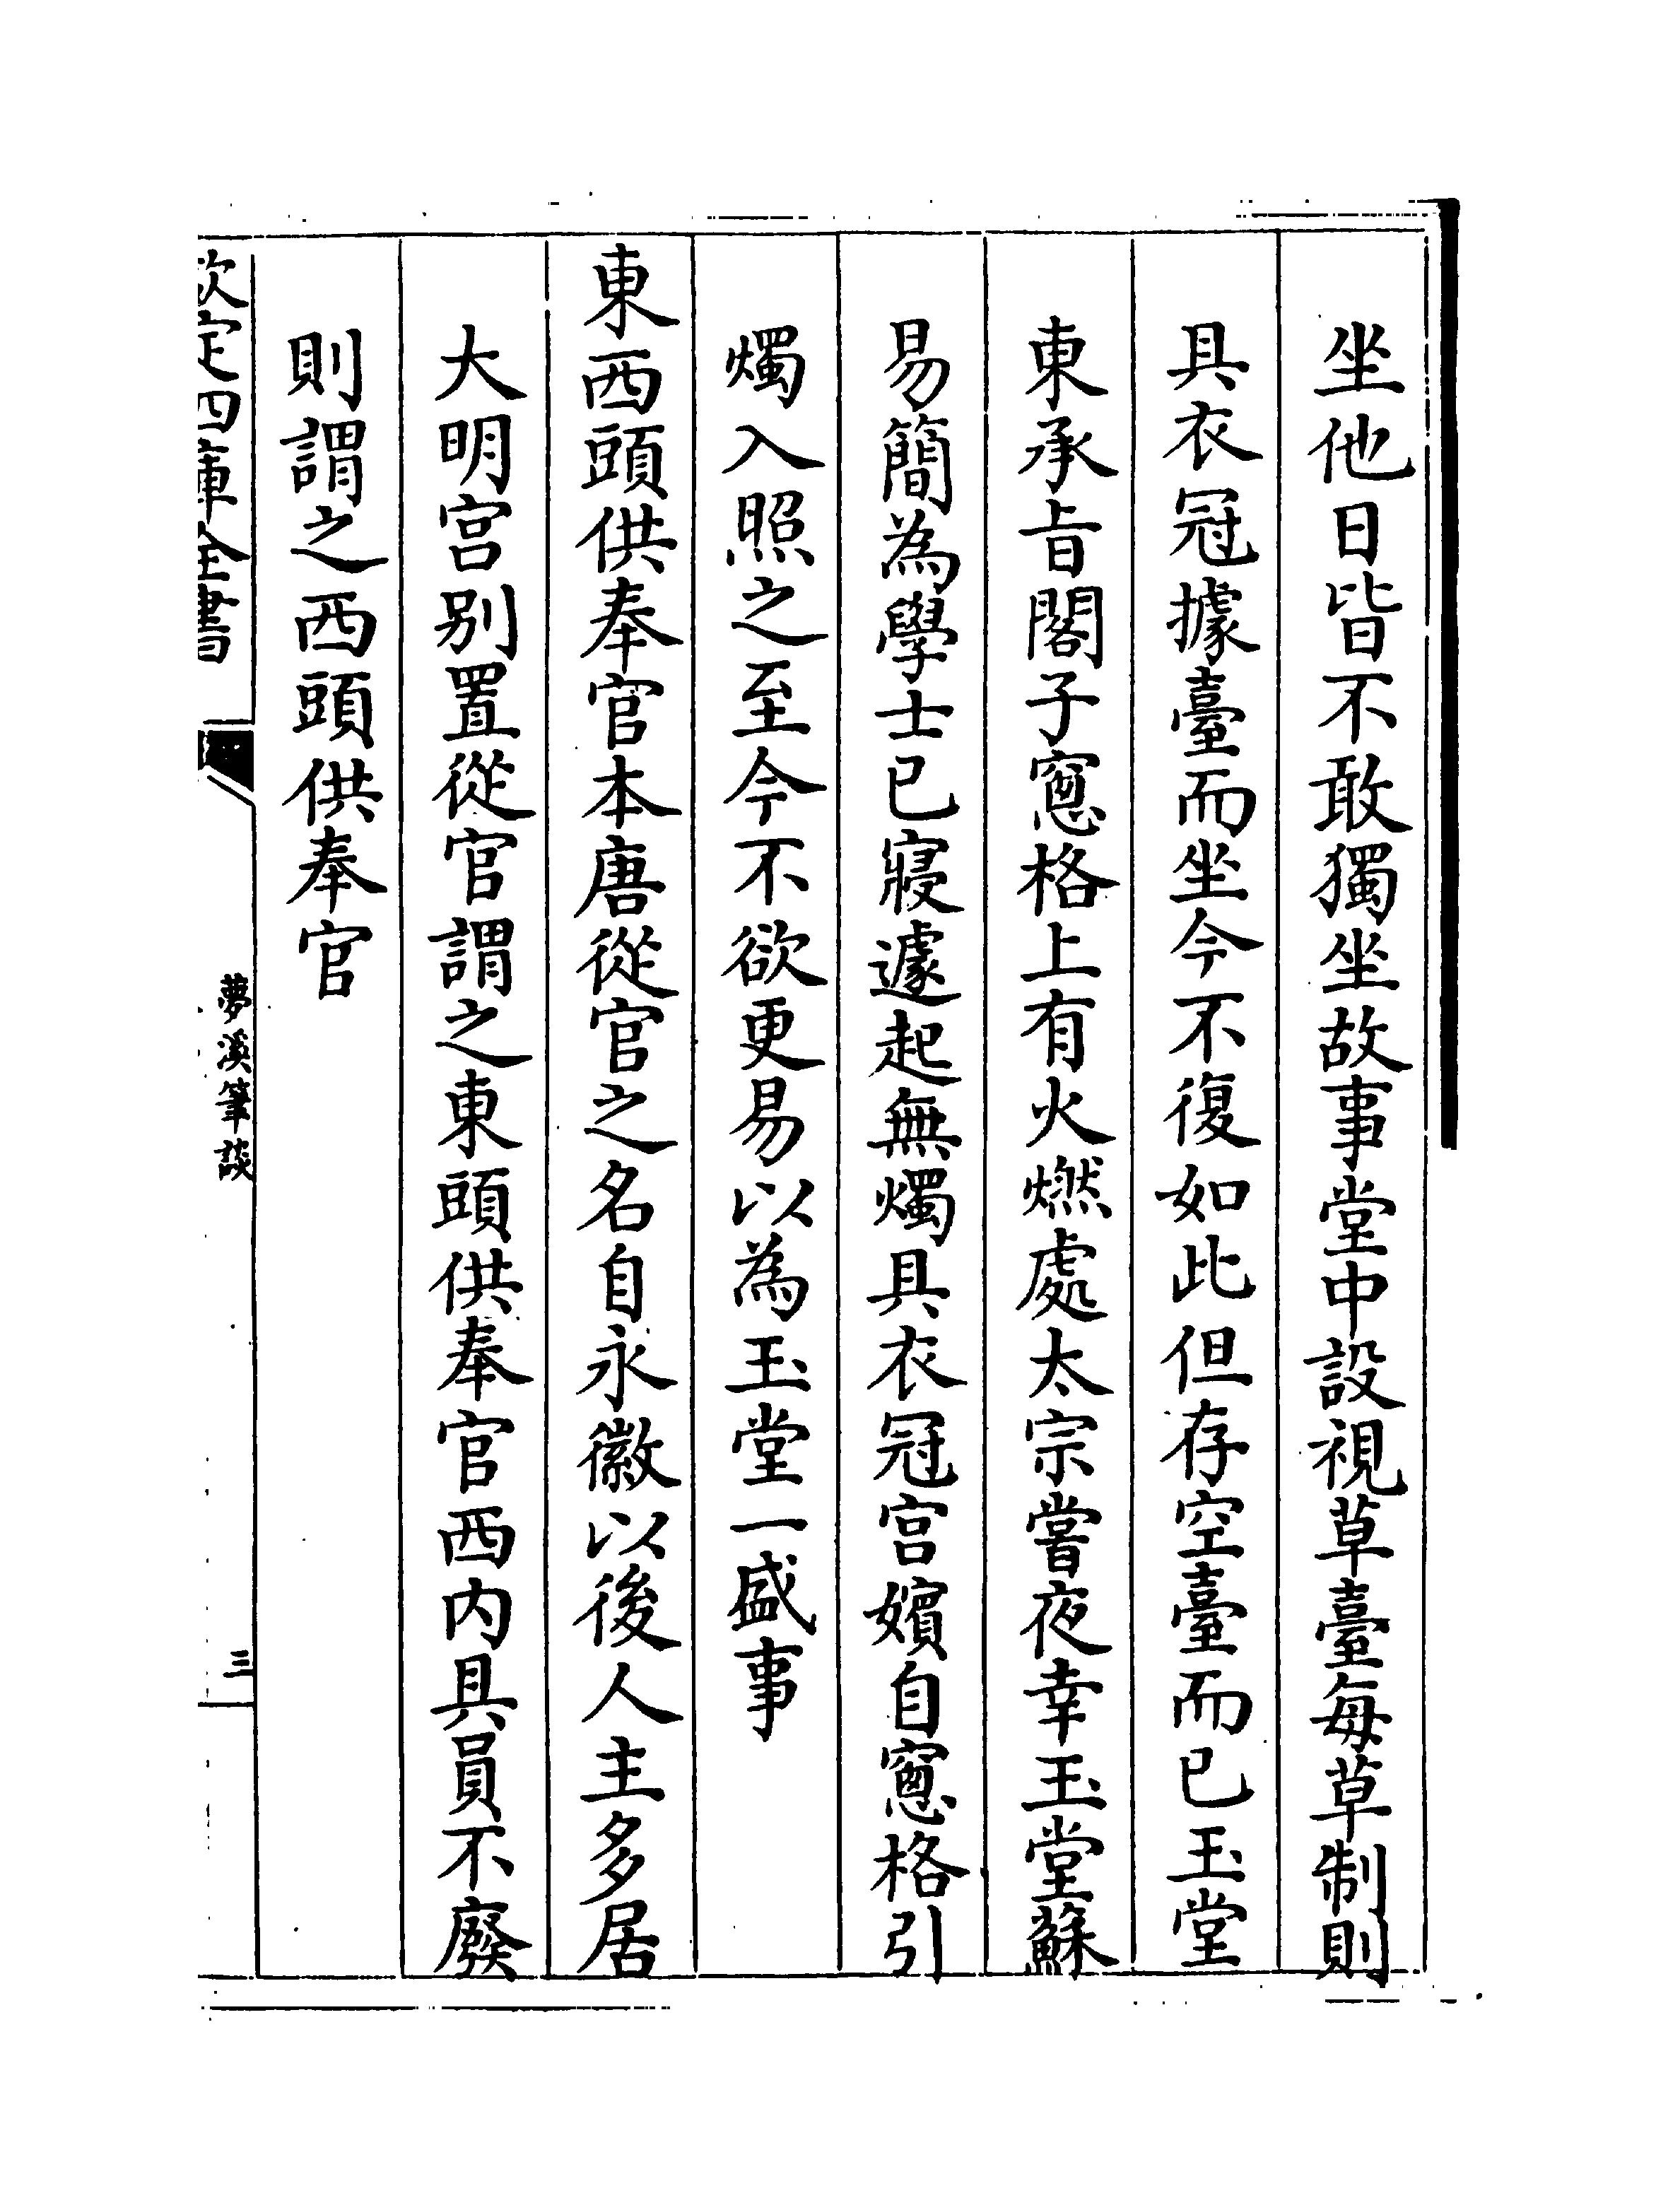 坐他日皆不敢獨坐故事堂中設視草臺每草制則
具衣冠據臺而坐今不復如此但存空臺而已玉堂
東承旨閣子窻格上有火燃處太宗嘗夜幸玉堂蘇
易簡為學士已寢遽起無燭具衣冠宮嬪自窻格引
燭入照之至今不欲更易以為玉堂一盛事
東西頭供奉官本唐從官之名自永徽以後人主多居
大明宮别置從官謂之東頭供奉官西内具員不廢
則謂之西頭供奉官
欽定四庫全書
夢溪筆談
三